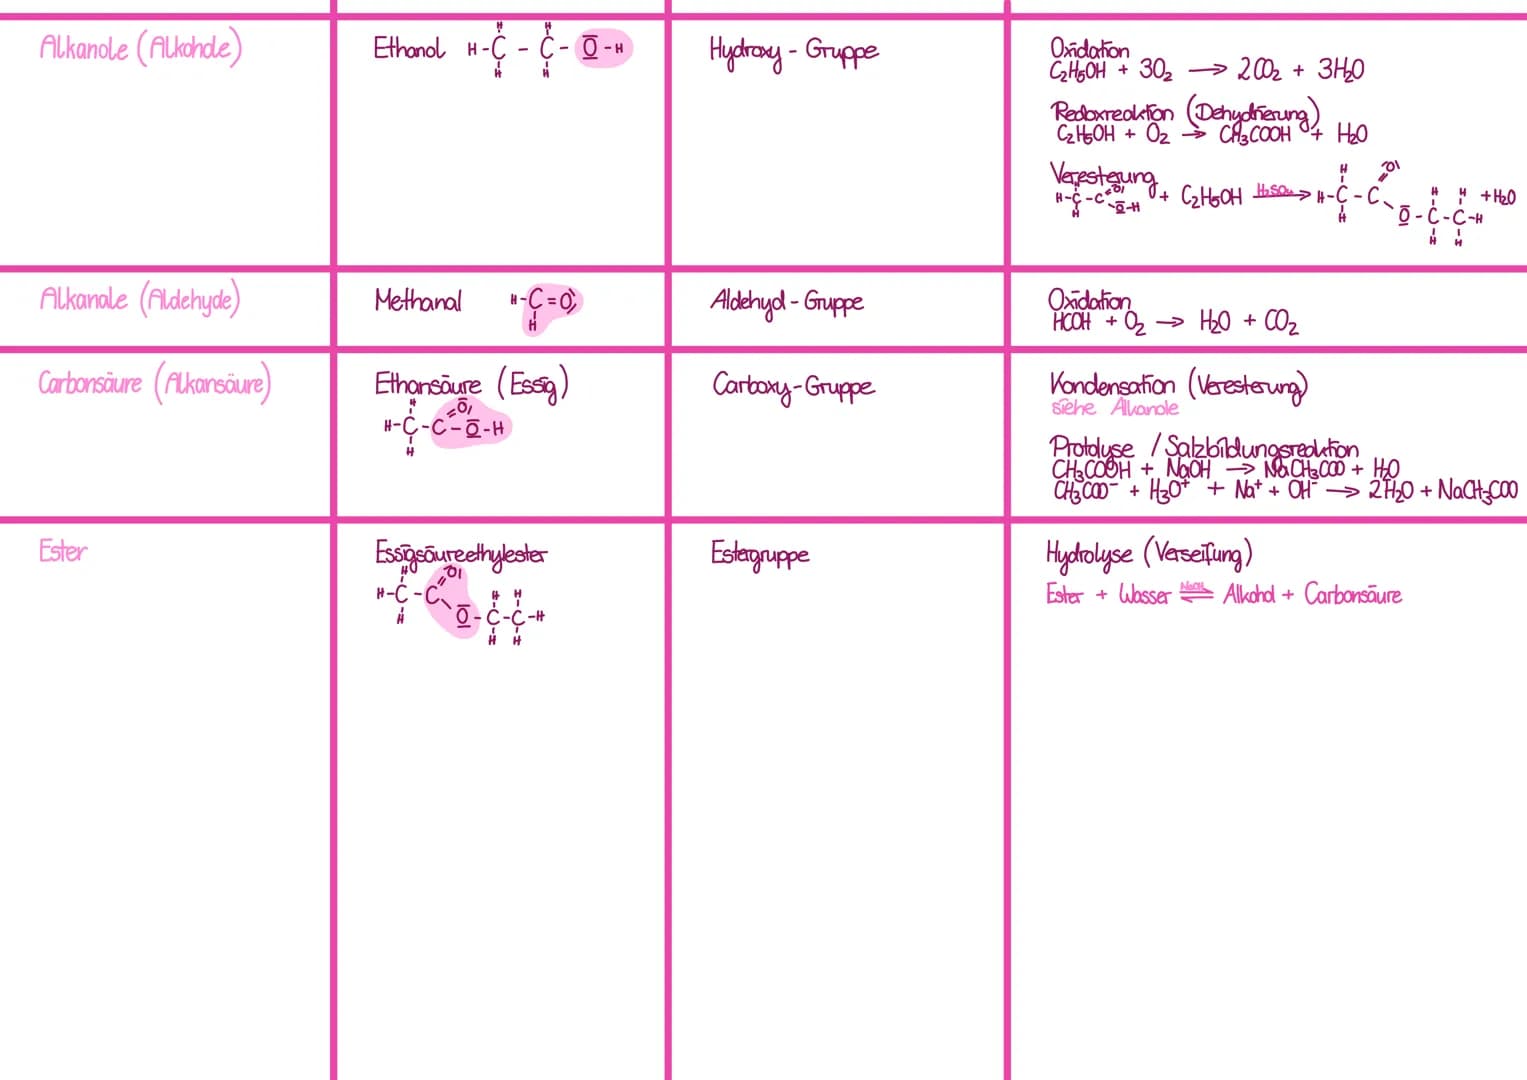 Alkanole (Alkohole)
Ethanol
H H
H-C - C- O -H
H H
Hydroxy - Gruppe
Oxidation
C₂H₅OH + 3O₂ → 2CO₂ + 3H₂O
Redoxreaktion (Dehydrierung)
C₂H₅OH + O₂ → CH₃COOH + H₂O
Veresterung
H-C-C O O-H + C₂H₅OH H₂SO₄→ H-C-C O O-C-C-H + H₂O
Alkanale (Aldehyde)
Methanal
H-C=O
H
Aldehyd - Gruppe
Oxidation
HCOH + O₂ → H₂O + CO₂
Carbonsäure (Alkansäure)
Ethansäure (Essig)
H O
H-C-C-O-H
H
Carboxy-Gruppe
Kondensation (Veresterung)
siehe Alkanole
Protolyse / Salzbildungsreaktion
CH₃COOH + NaOH → NaCH₃COO + H₂O
CH₃COO⁻ + H₃O⁺ + Na⁺ + OH⁻ → 2H₂O + NaCH₃COO
Ester
Essigsäureethylester
H O
H-C-C H H
H O-C-C-H
H H
Estergruppe
Hydrolyse (Verseifung)
Ester + Wasser NaOH ⇌ Alkohol + Carbonsäure